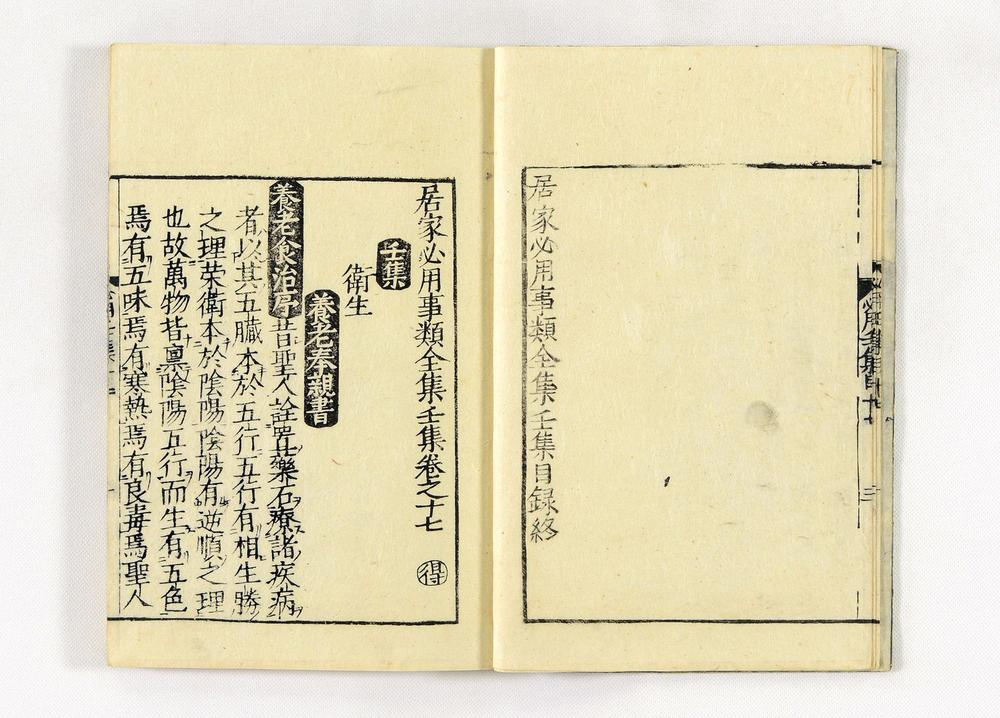 居家必用事類全集壬集目録終
居家必用事類全集壬集卷之十七 得
壬集
衛生
養老奉親書
養老食治序 昔聖人詮置藥石療諸疾病
者以其五臟本於五行五行有相生勝
之理荣衛本於陰陽陰陽有逆順之理
也故萬物皆禀陰陽五行而生有五色
焉有五味焉有寒熱焉有良毒焉聖人